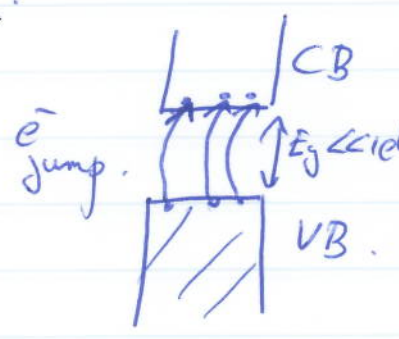 CB
e⁻
jump.
Eg <<1e
VB.